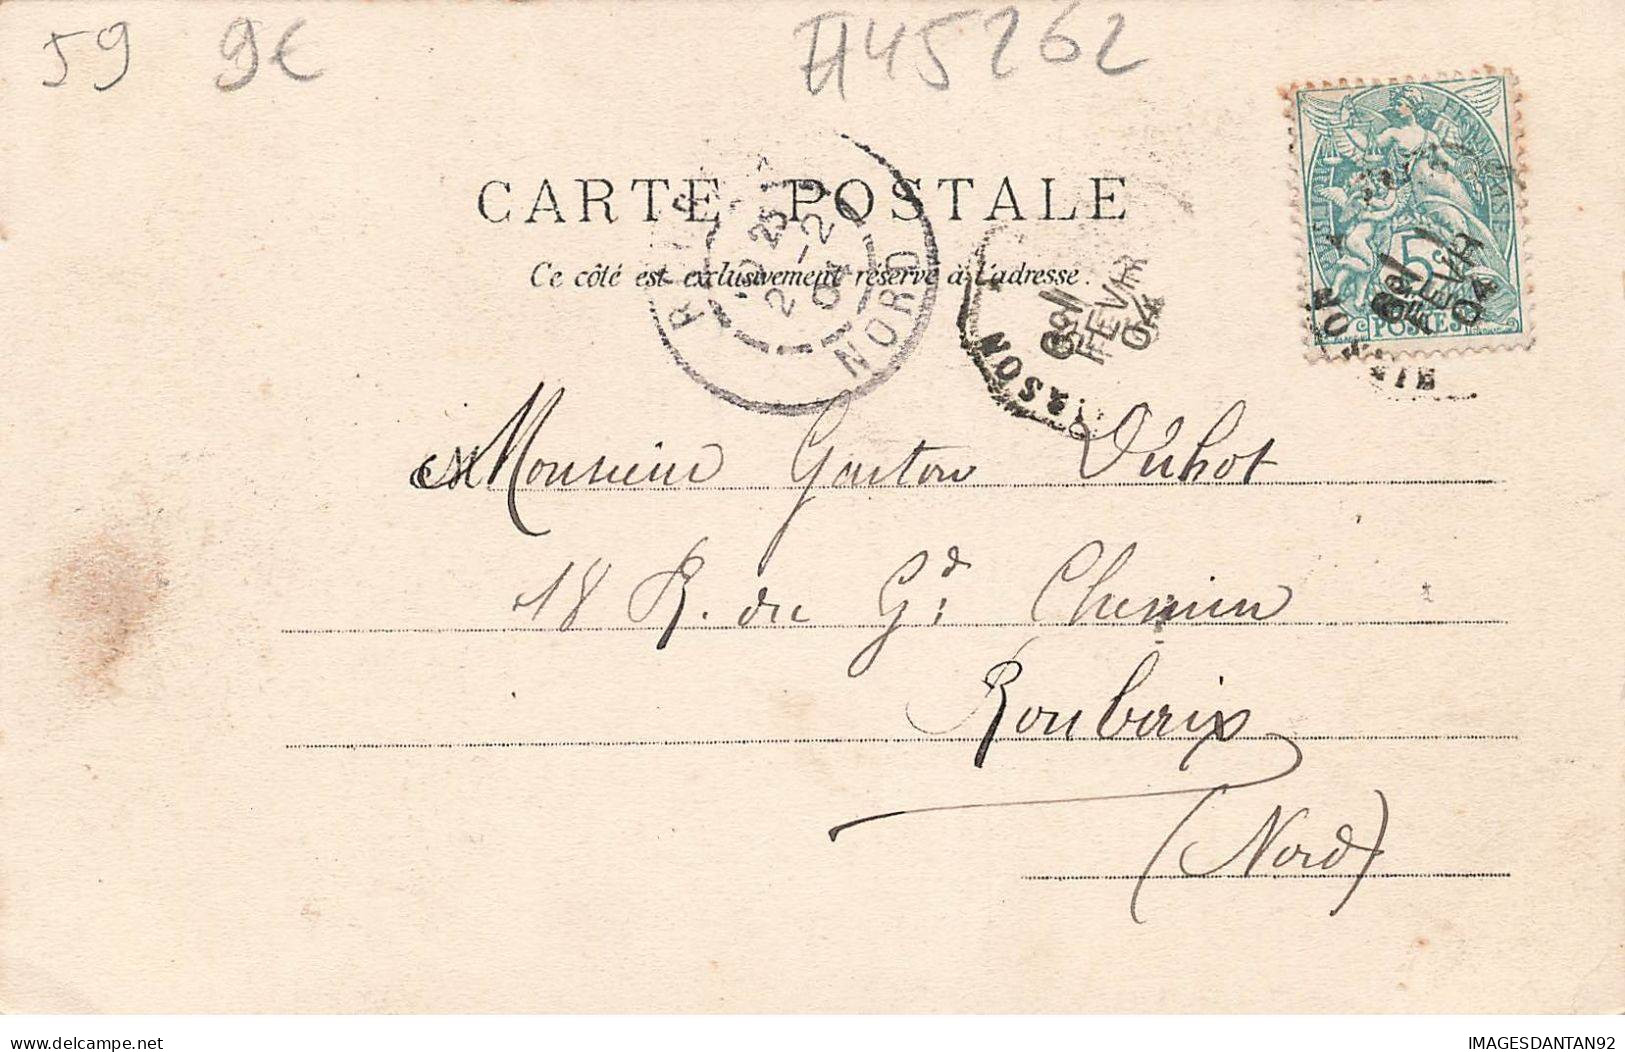 59 9€ A45262
CARTE POSTALE
Ce côté est exclusivement réservé à l'adresse.
NORD
FEVR
04
5c
POSTES
FEVR
04
Monsieur Gaston Duhot
18 R. du Gd Chemin
Roubaix
(Nord)
delcampe.net
IMAGESDANTAN92